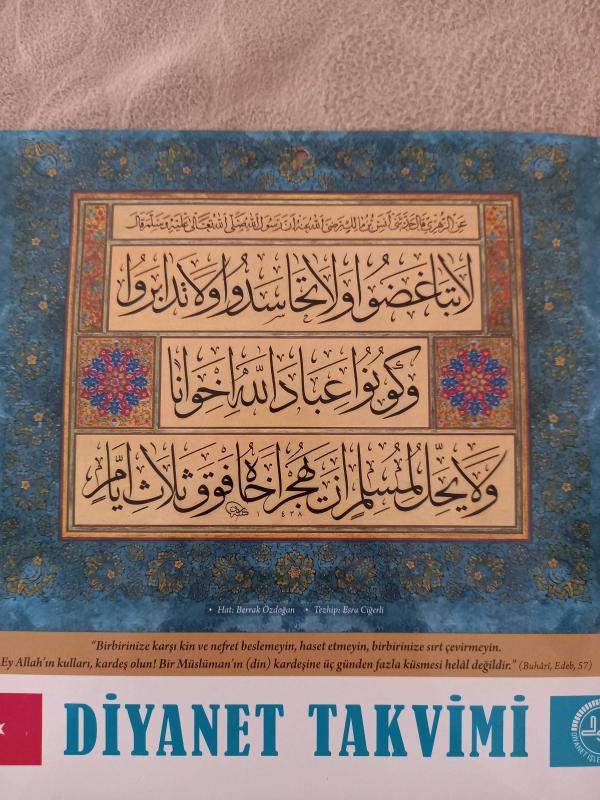 عَنِ الزُّهْرِيِّ قَالَ حَدَّثَنِي أَنَسُ بْنُ مَالِكٍ رَضِيَ اللهُ عَنْهُ أَنَّ رَسُولَ اللهِ صَلَّى اللهُ تَعَالَى عَلَيْهِ وَسَلَّمَ قَالَ
لَا تَبَاغَضُوا وَلَا تَحَاسَدُوا وَلَا تَدَابَرُوا
وَكُونُوا عِبَادَ اللهِ إِخْوَانًا
وَلَا يَحِلُّ لِمُسْلِمٍ أَنْ يَهْجُرَ أَخَاهُ فَوْقَ ثَلَاثِ أَيَّامٍ
١٤٣٨
• Hat: Berrak Özdoğan • Tezhip: Esra Ciğerli
“Birbirinize karşı kin ve nefret beslemeyin, haset etmeyin, birbirinize sırt çevirmeyin.
Ey Allah’ın kulları, kardeş olun! Bir Müslüman’ın (din) kardeşine üç günden fazla küsmesi helâl değildir.” (Buhârî, Edeb, 57)
DİYANET TAKVİMİ
DİYANET İŞLE